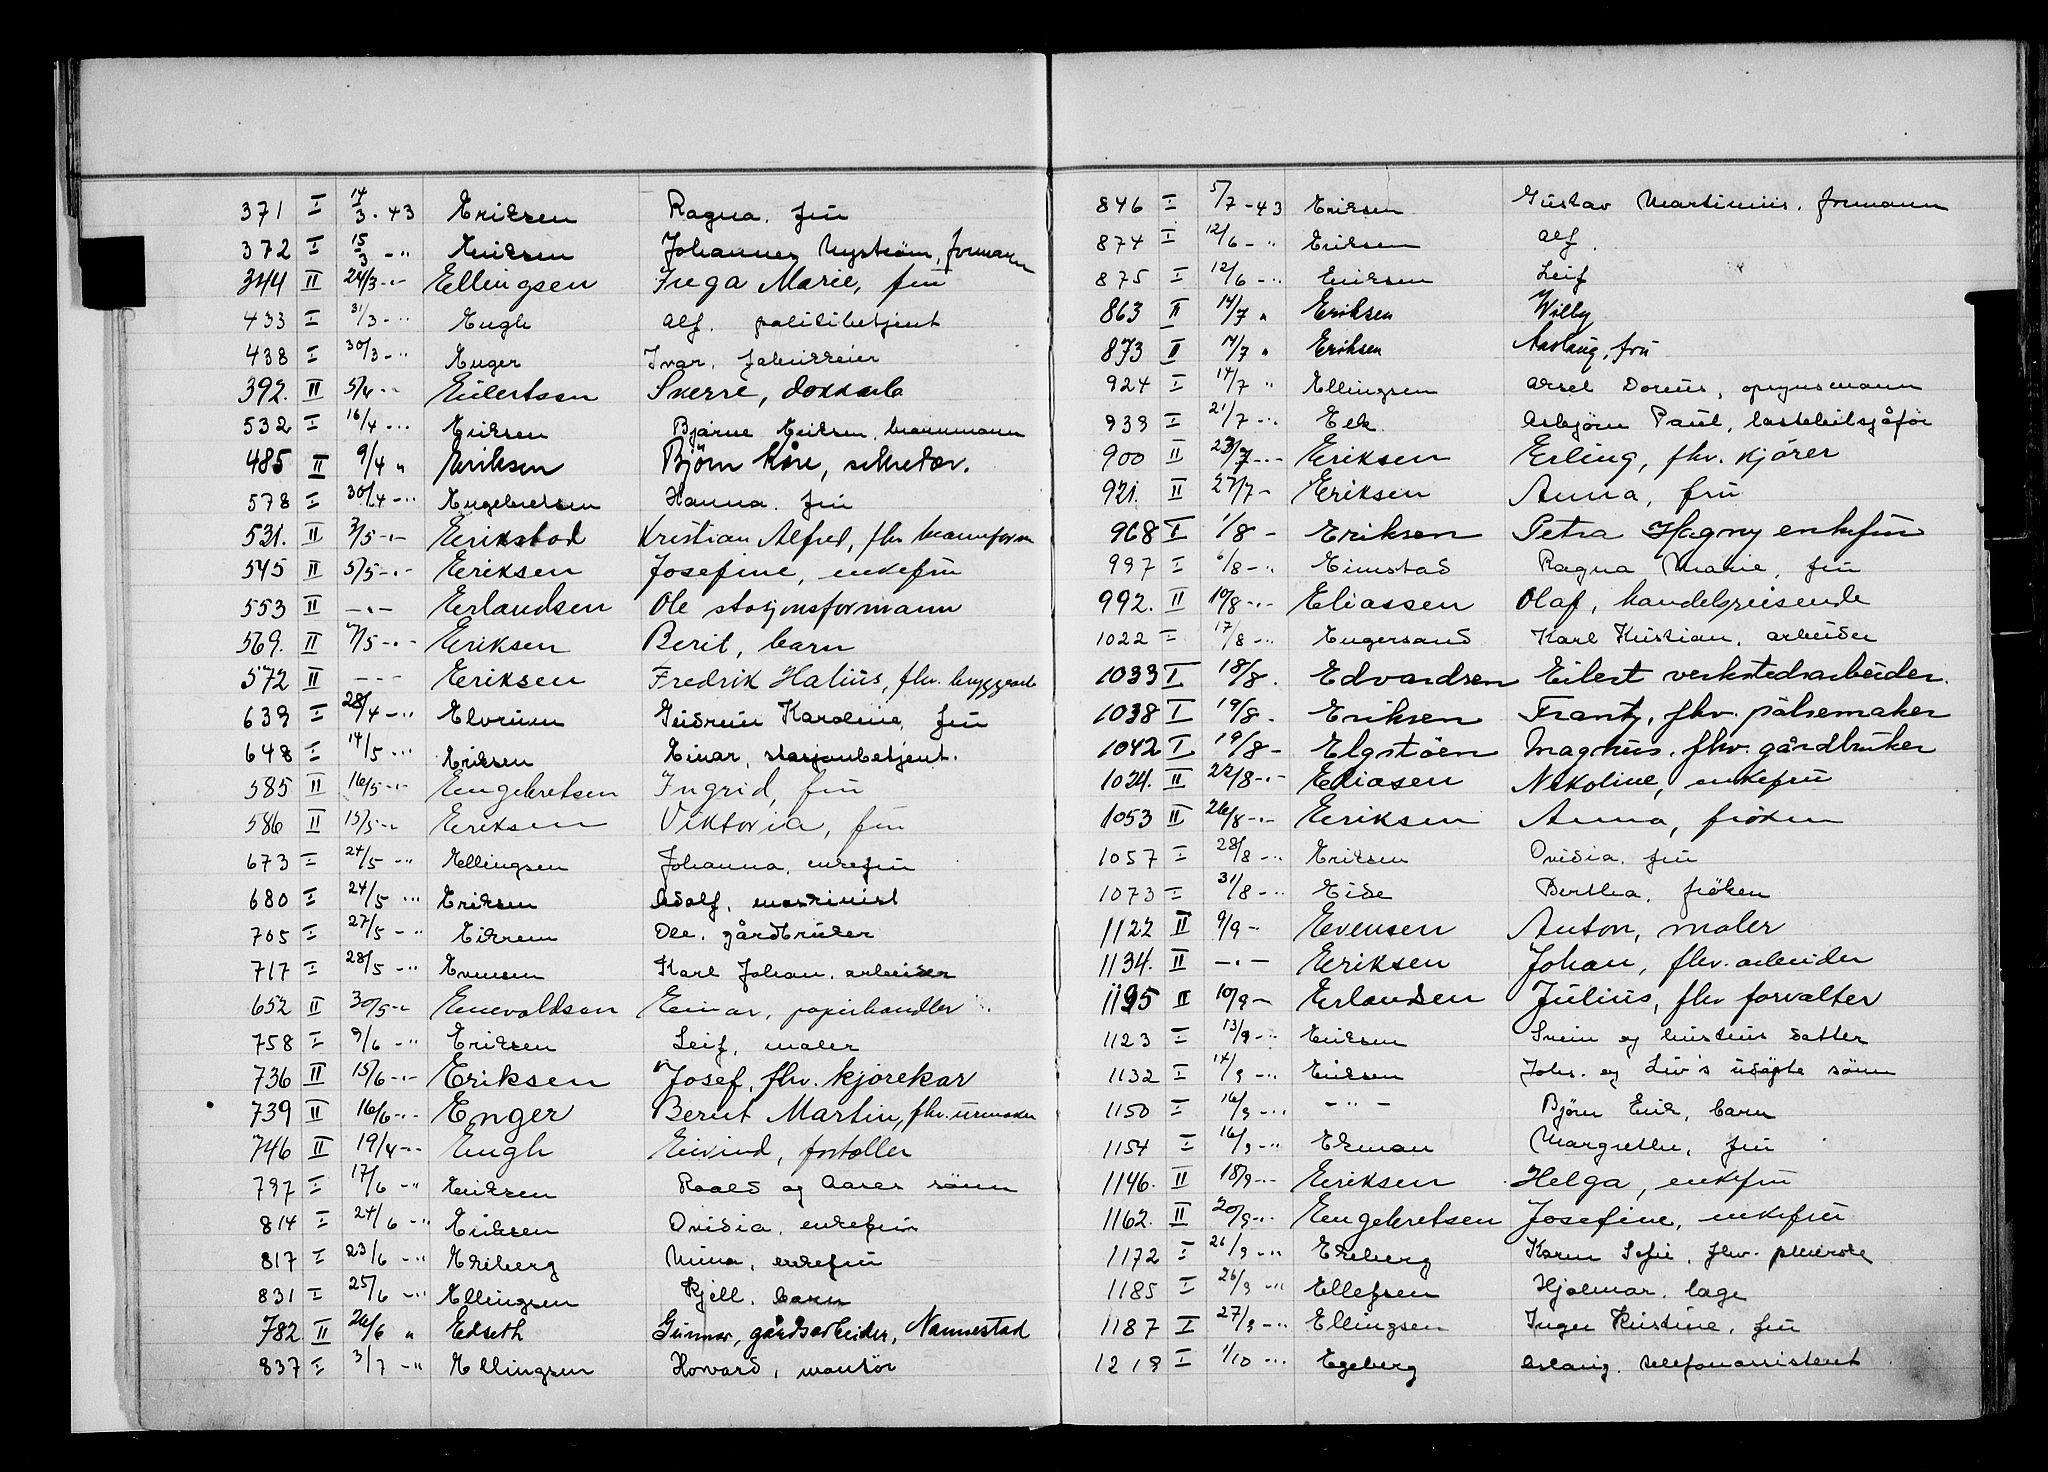 371 I 14/3-43 Eriksen Ragna, fru
372 I 15/3-" Eriksen Johannes Nyström, formann
344 II 24/3-"- Ellingsen Inga Marie, fru
433 I 31/3-" Engh Alf. politibetjent
438 I 30/3-" Enger Ivar,
392. II 5/4-"- Eilertsen Sverre, dokkarb
532 I 16/4-" Eriksen Bjarne Eriksen, brannmann
485 II 9/4 " Eriksen Björn Kåre, sekretær.
578 I 30/4-" Engebretsen Hanna. fru
531. II 3/5-"- Erikstad Kristian Alfred, fhv brannform
545 II 5/5-"- Eriksen Josefine, enkefru
553 II -"- Erlandsen Ole stasjonsformann
569. II 7/5-"- Eriksen Berit, barn
572 II --- Eriksen Fredrik Halius, fhv. bryggearb
639 I 28/4-" Elvrum Gudrun Karoline, fru
648 I 14/5-" Eriksen Einar, stasjonbetjent.
585 II 16/5-"- Engebretsen Ingrid, fru
586 II 15/5-"- Eriksen Viktoria, fru
673 I 24/5-" Ellingsen Johanna, enkefru
680 I 24/5-" Eriksen Adolf, maskinist
705 I 27/5-" Eikrem Ole, gårdbruker
717 I 28/5-" Evensen Karl Johan, arbeider
652 II 30/5-"- Enevoldsen Einar, papirhandler
758 I 9/6-" Eriksen Leif, maler
736 II 15/6-"- Eriksen Josef, fhv. kjørekar
739 II 16/6-"- Enger Bernt Martin, fhv. urmaker
746 II 19/4-"- Engh Eivind, fortoller
797 I 17/6-" Eriksen Roald og Aases sønn
814 I 24/6-" Eriksen Ovidia, enkefru
817 I 23/6-" Ekeberg Mina, enkefru
831 I 25/6-" Ellingsen Kjell, barn
782 II 26/6 " Edseth Gunnar, gårdsarbeider, Nannestad
837 I 3/7-" Ellingsen Hovard, montør
846 I 5/7-43 Eriksen Gustav Martinius, formann
874 I 12/6-" Eriksen Alf.
875 I 12/6-" Eriksen Leif
863 II 14/7 " Eriksen Willy
873 II 17/7 " Eriksen Aaslaug, fru
924 I 14/7 " Ellingsen Aksel Doreus, opsynsmann
939 I 21/7-" Eek Asbjörn Paul, lastebilsjåför
900 II 23/7-"- Eriksen Erling, fhv. kjörer
921. II 27/7- Eriksen Anna, fru
968 I 1/8 - Eriksen Petra Hagny enkefru
997 I 6/8-" Eimstad Ragna Marie, fru
992. II 10/8-"- Eliassen Olaf, handelsreisende
1022 I 17/8-" Engersand Karl Kristian, arbeider
1033 I 18/8. Edvardsen Eilert verkstedsarbeider.
1038 I 19/8. Eriksen Frantz, fhv. pølsemaker
1042 I 19/8- Elgstöen Magnus, fhv. gårdbruker
1024. II 22/8-"- Eliasen Nikoline, enkefru
1053 II 26/8-"- Eriksen Anna, fröken
1057 I 28/8-" Eriksen Ovidia, fru
1073 I 31/8-" Eide Bertha, fröken
1122 II 9/9- Evensen Anton, maler
1134. II -"- Eriksen Johan, fhv. arbeider
1195 II 10/9- Erlandsen Julius, fhv forvalter
1123 I 13/9-" Eriksen Svein og hustrus datter
1132 I 14/9-" Eriksen Johs. og Liv's udöpte sönn
1150 I 16/9-" - " - Björn Erik, barn
1154 I 16/9-" Ekman Margrethe, fru
1146. II 18/9-"- Eriksen Helga, enkefru
1162. II 20/9-"- Engebretsen Josefine, enkefru
1172 I 26/9-" Ekeberg Karen Sofie, fhv. pleierske
1185 I 26/9-" Ellefsen Hjalmar, lage
1187 I 27/9-" Ellingsen Inger Kristine, fru
1219 I 1/10-" Egeberg Aslaug, telefonassistent